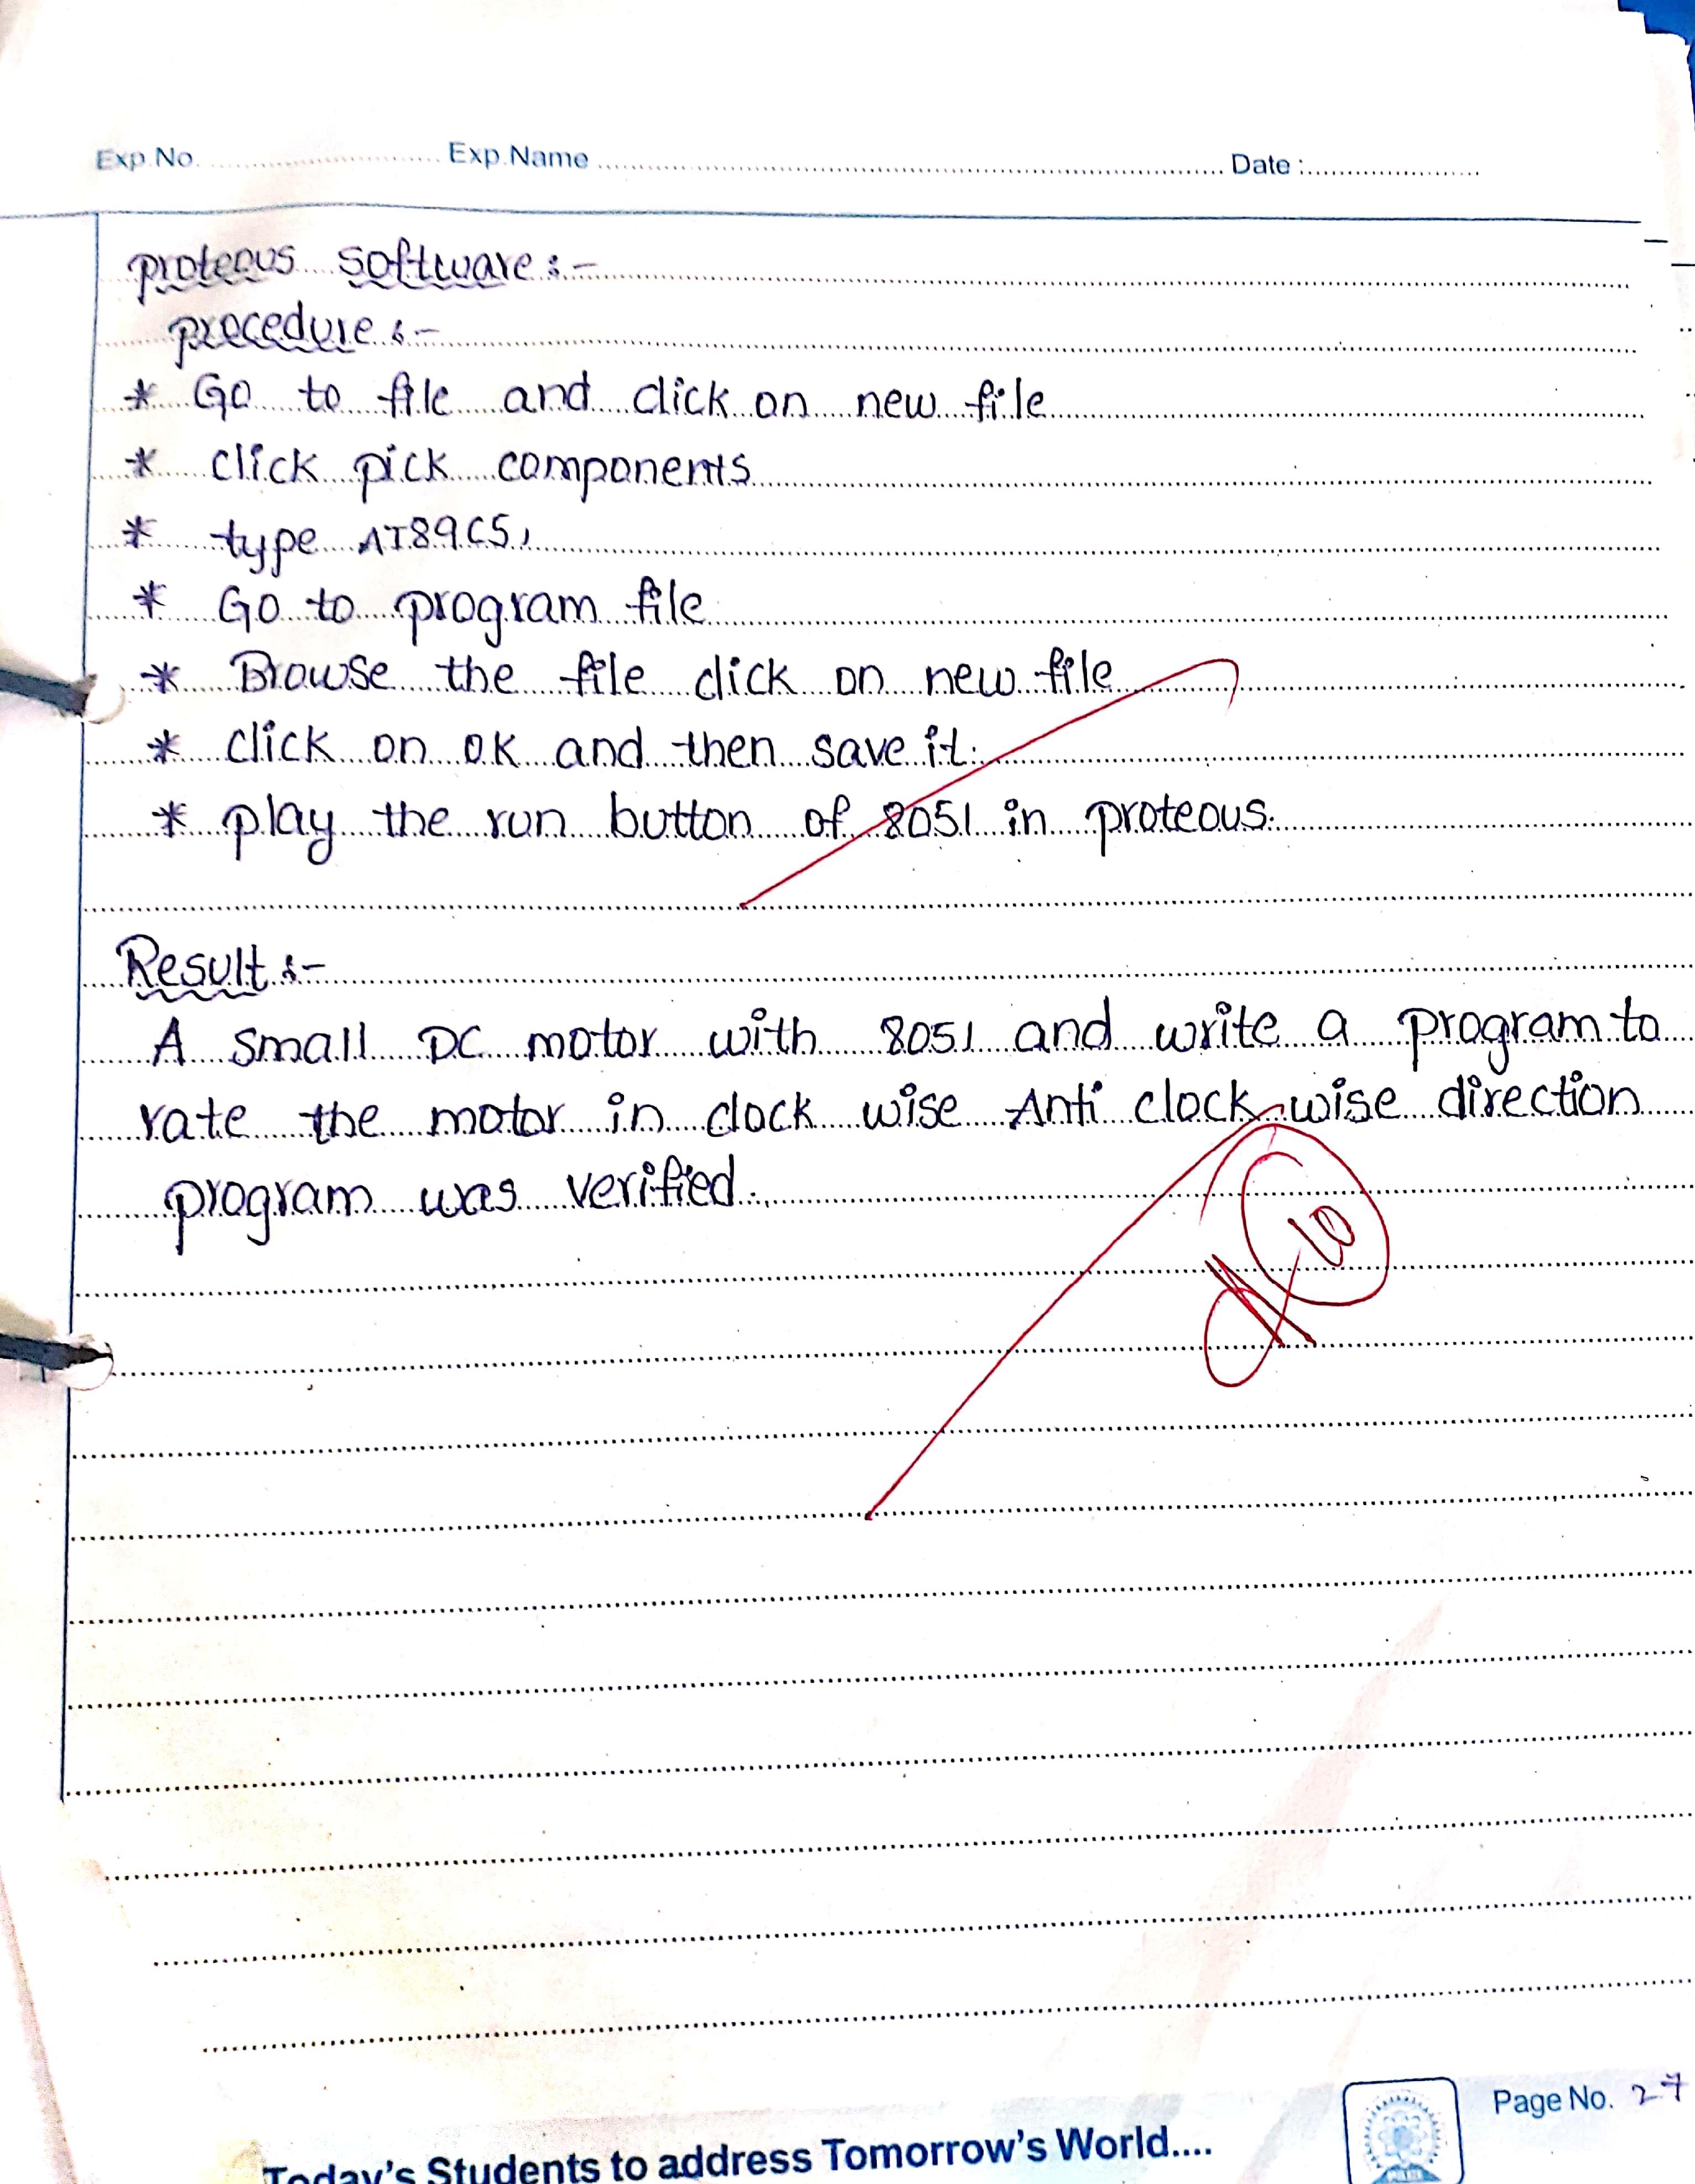 Exp.No. Exp.Name Date :
proteous software :-
procedure :-
* Go to file and click on new file
* click pick components
* type AT89C51
* Go to program file
* Browse the file click on new file
* click on ok and then save it.
* play the run button of 8051 in proteous.
Result :-
A small DC motor with 8051 and write a program to
rate the motor in clock wise Anti clock wise direction
program was verified.
10
Page No. 27
Today's Students to address Tomorrow's World....